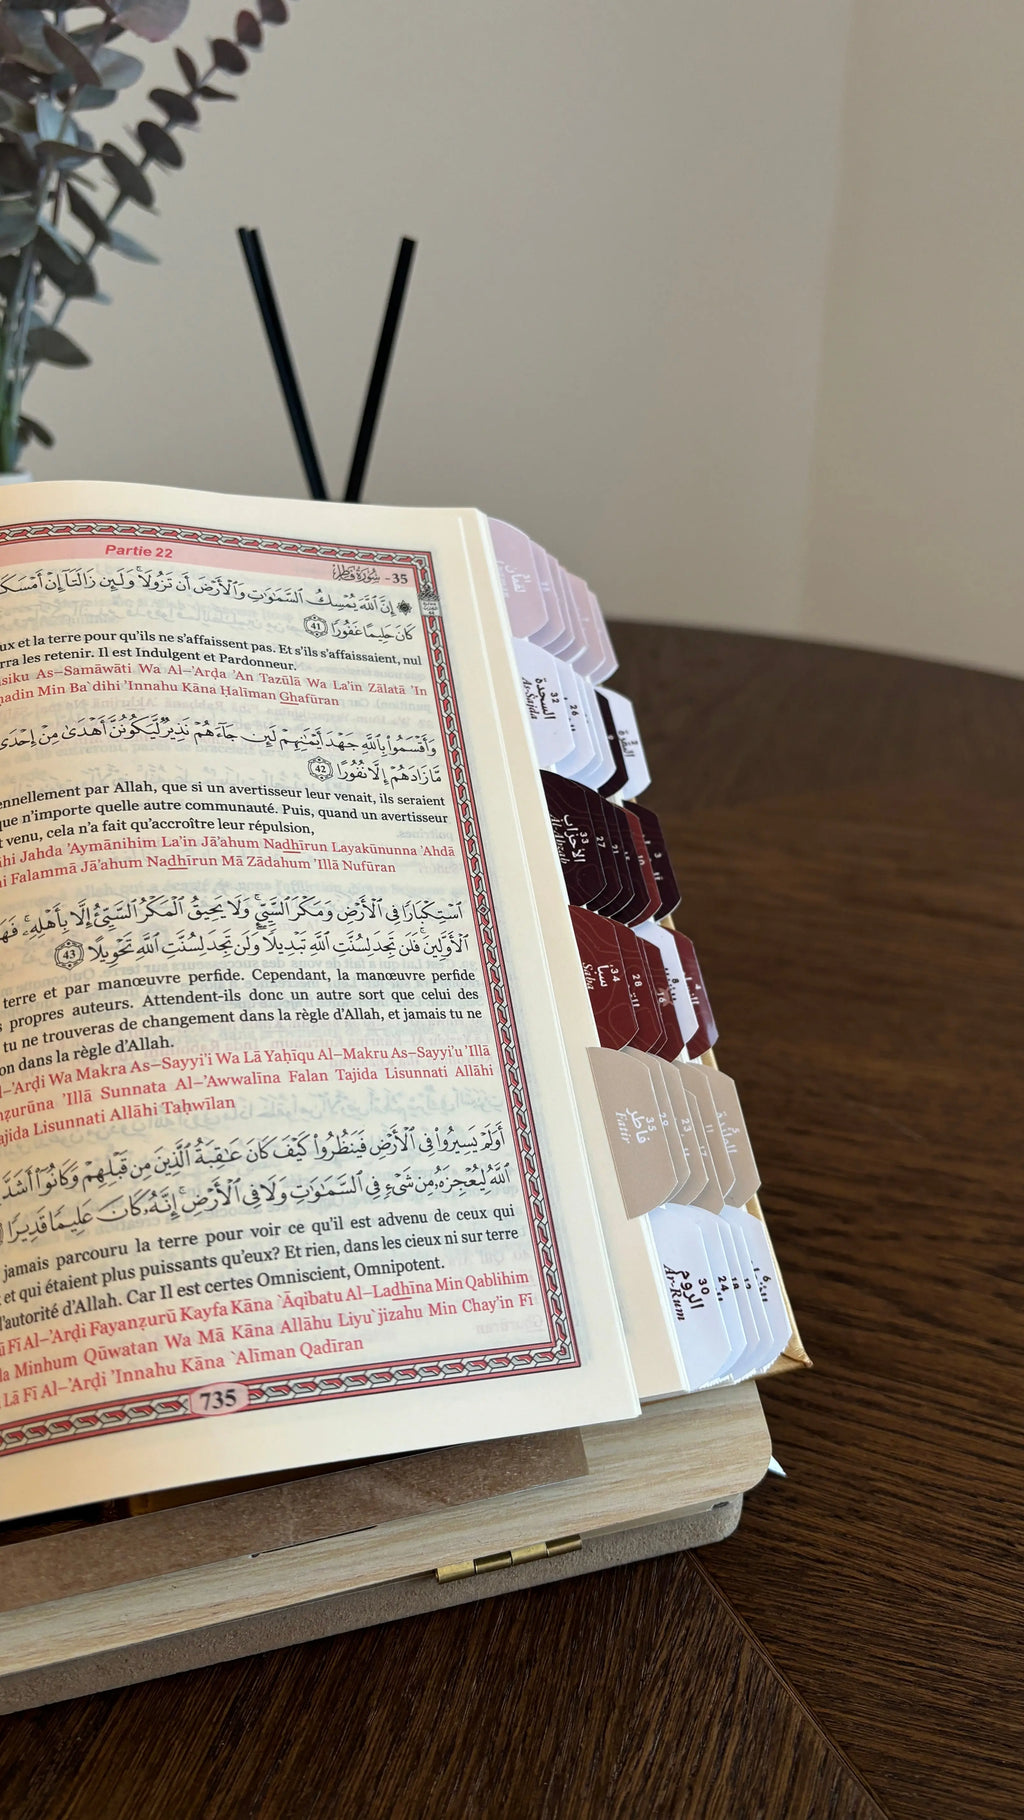 Partie 22
35 - سُورَةُ فَاطِرٍ
۞ إِنَّ ٱللَّهَ يُمۡسِكُ ٱلسَّمَٰوَٰتِ وَٱلۡأَرۡضَ أَن تَزُولَاۚ وَلَئِن زَالَتَآ إِنۡ أَمۡسَكَ
كَانَ حَلِيمًا غَفُورٗا 41
ux et la terre pour qu'ils ne s'affaissent pas. Et s'ils s'affaissaient, nul
rra les retenir. Il est Indulgent et Pardonneur.
siku As–Samāwāti Wa Al–'Arđa 'An Tazūlā Wa La'in Zālatā 'In
ĥadin Min Ba`dihi 'Innahu Kāna Ĥalīman Ghafūran
وَأَقۡسَمُواْ بِٱللَّهِ جَهۡدَ أَيۡمَٰنِهِمۡ لَئِن جَآءَهُمۡ نَذِيرٞ لَّيَكُونُنَّ أَهۡدَىٰ مِنۡ إِحۡدَى
مَّا زَادَهُمۡ إِلَّا نُفُورًا 42
ennellement par Allah, que si un avertisseur leur venait, ils seraient
que n'importe quelle autre communauté. Puis, quand un avertisseur
t venu, cela n'a fait qu'accroître leur répulsion,
ihi Jahda 'Aymānihim La'in Jā'ahum Nadhīrun Layakūnunna 'Ahdá
i Falammā Jā'ahum Nadhīrun Mā Zādahum 'Illā Nufūran
ٱسۡتِكۡبَارٗا فِي ٱلۡأَرۡضِ وَمَكۡرَ ٱلسَّيِّيِٕۚ وَلَا يَحِيقُ ٱلۡمَكۡرُ ٱلسَّيِّئُ إِلَّا بِأَهۡلِهِۦۚ فَهَ
ٱلۡأَوَّلِينَۚ فَلَن تَجِدَ لِسُنَّتِ ٱللَّهِ تَبۡدِيلٗاۖ وَلَن تَجِدَ لِسُنَّتِ ٱللَّهِ تَحۡوِيلًا 43
terre et par manœuvre perfide. Cependant, la manœuvre perfide
s propres auteurs. Attendent-ils donc un autre sort que celui des
tu ne trouveras de changement dans la règle d'Allah, et jamais tu ne
on dans la règle d'Allah.
l–'Arđi Wa Makra As–Sayyi'i Wa Lā Yaĥīqu Al–Makru As–Sayyi'u 'Illā
nžurūna 'Illā Sunnata Al–'Awwalīna Falan Tajida Lisunnati Allāhi
ajida Lisunnati Allāhi Taĥwīlan
أَوَلَمۡ يَسِيرُواْ فِي ٱلۡأَرۡضِ فَيَنظُرُواْ كَيۡفَ كَانَ عَٰقِبَةُ ٱلَّذِينَ مِن قَبۡلِهِمۡ وَكَانُوٓاْ أَشَدَّ
ٱللَّهُ لِيُعۡجِزَهُۥ مِن شَيۡءٖ فِي ٱلسَّمَٰوَٰتِ وَلَا فِي ٱلۡأَرۡضِۚ إِنَّهُۥ كَانَ عَلِيمٗا قَدِيرٗا
jamais parcouru la terre pour voir ce qu'il est advenu de ceux qui
et qui étaient plus puissants qu'eux? Et rien, dans les cieux ni sur terre
l'autorité d'Allah. Car Il est certes Omniscient, Omnipotent.
ū Fī Al–'Arđi Fayanžurū Kayfa Kāna `Āqibatu Al–Ladhīna Min Qablihim
la Minhum Qūwatan Wa Mā Kāna Allāhu Liyu`jizahu Min Chay'in Fī
Lā Fī Al–'Arđi 'Innahu Kāna `Alīman Qadīran
735
31
لقمان
32
السجدة
As-Sajda
26
البقرة
33
الأحزاب
Al-Ahzab
27
21
3
34
سبأ
Saba
28
16
35
فاطر
Fatir
29
23
11
المائدة
30
الروم
Ar-Rum
24
18
12
6